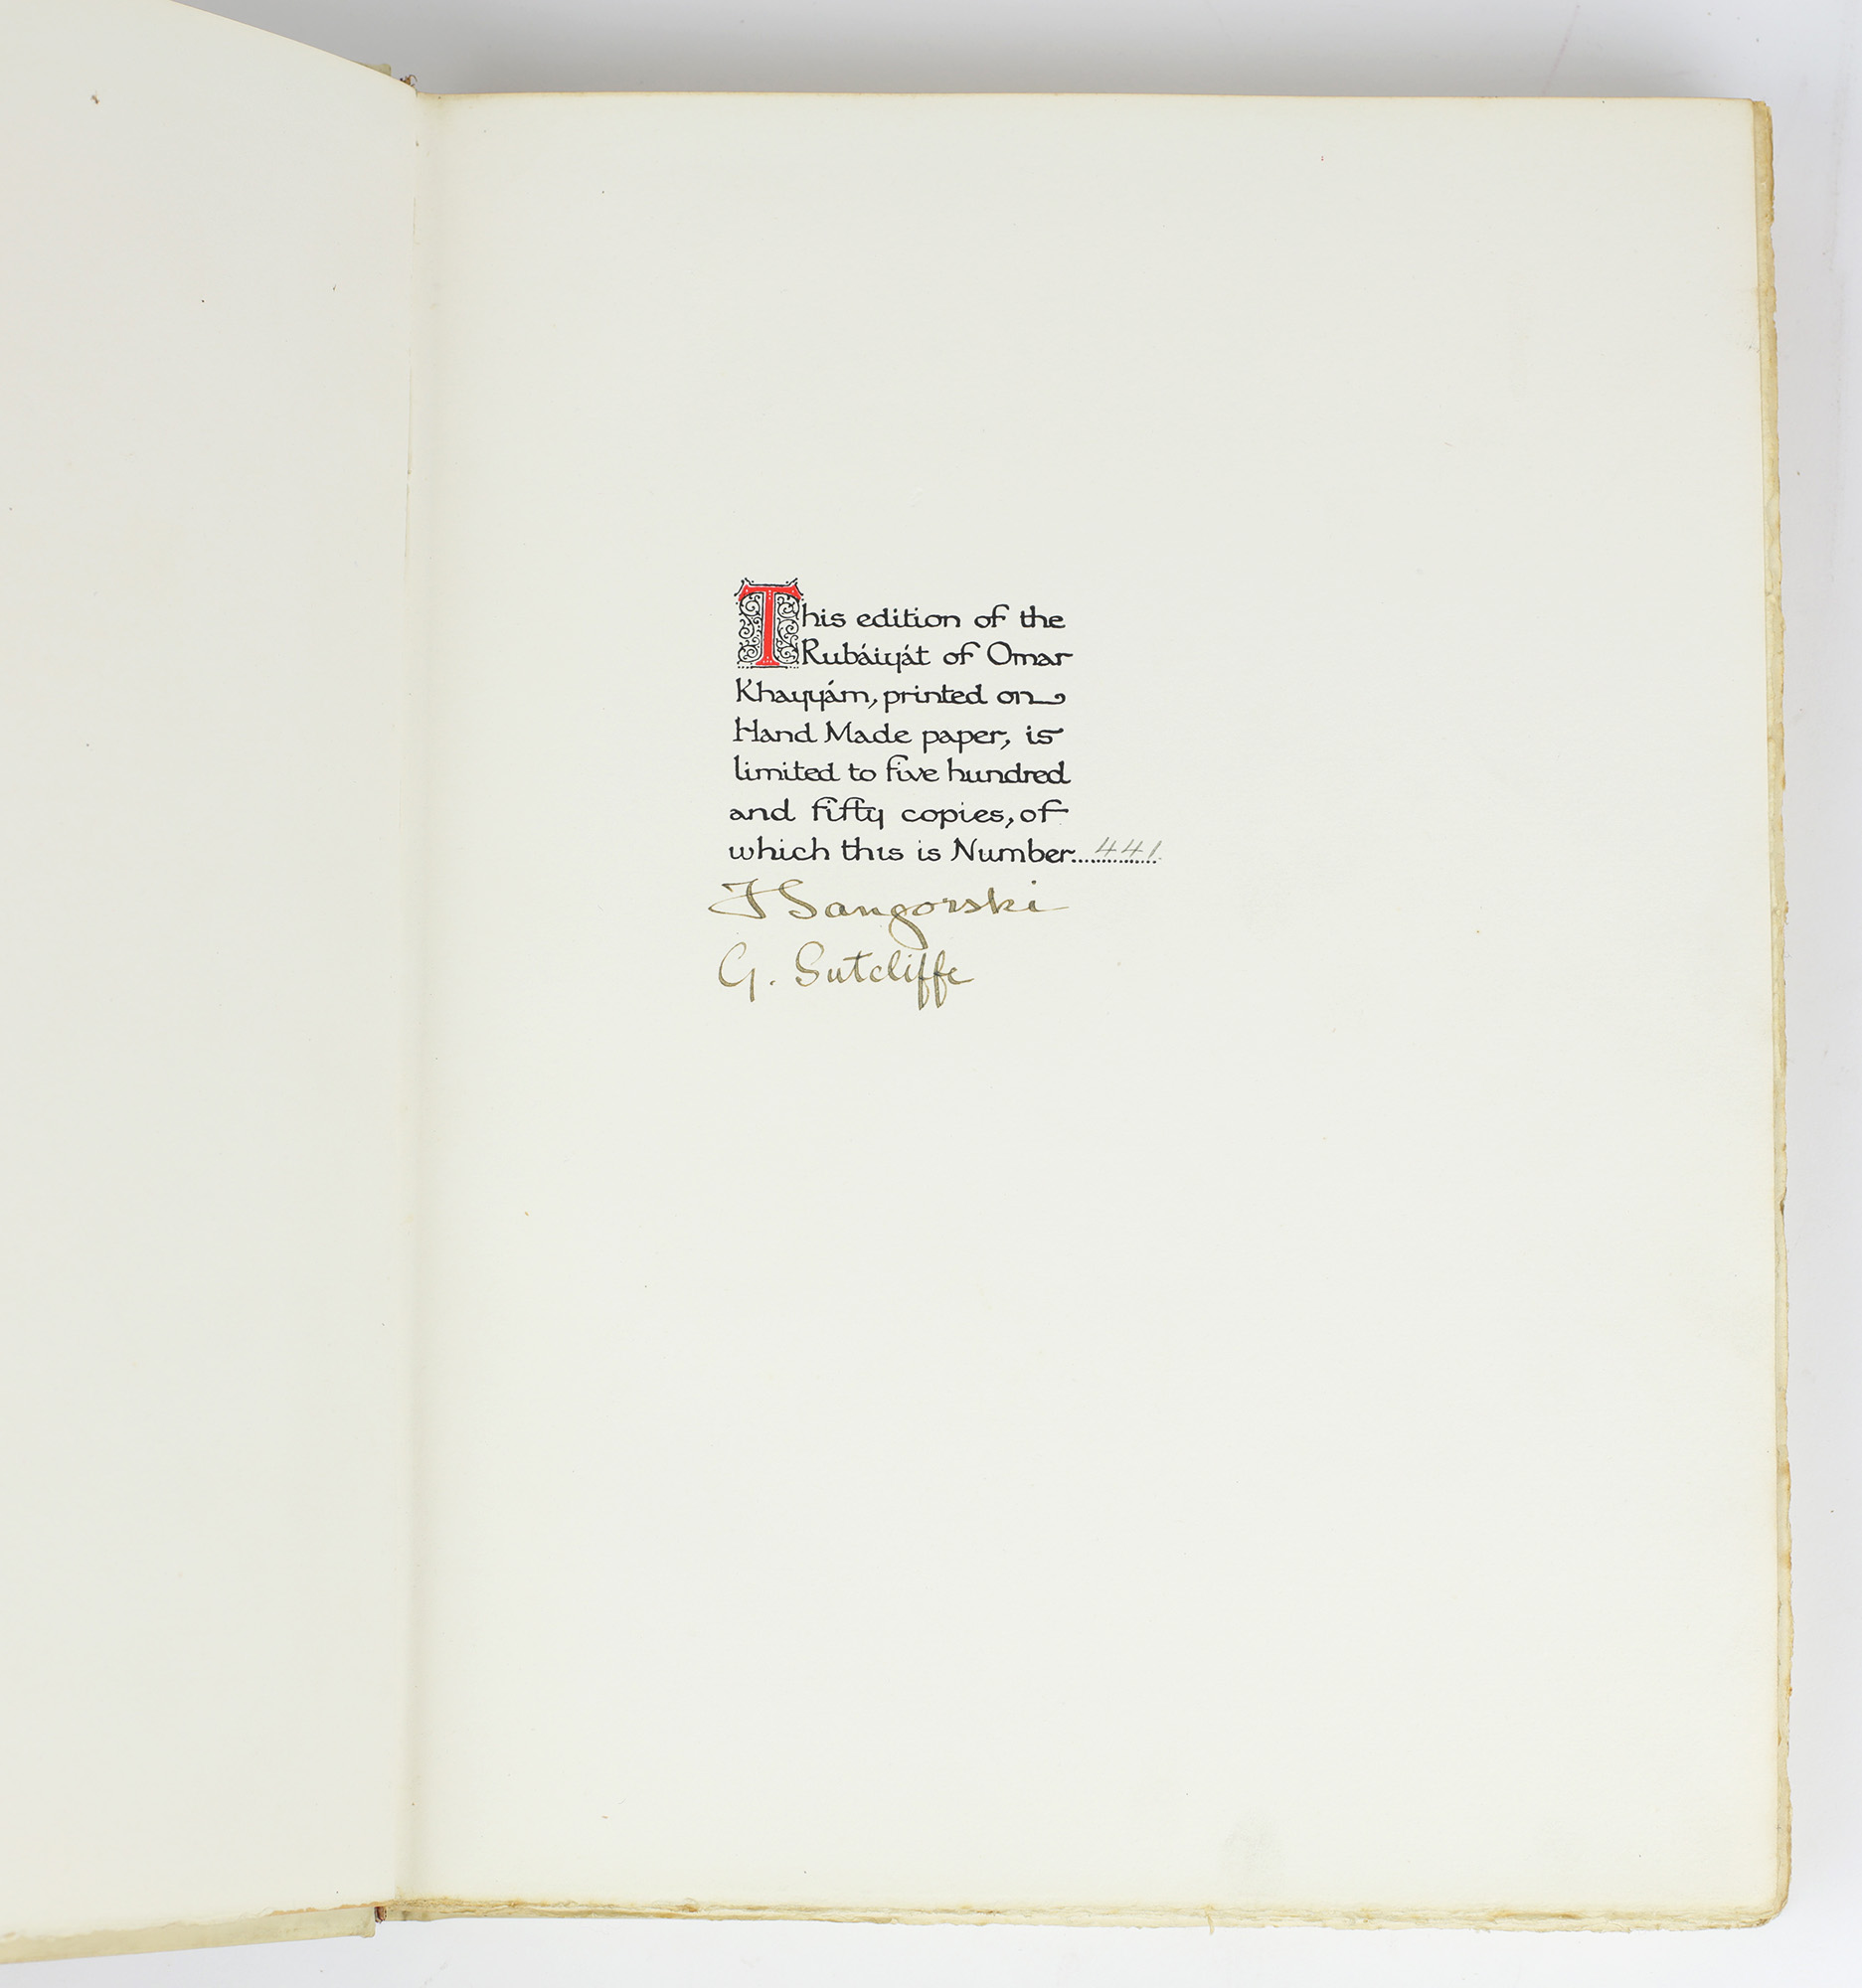 This edition of the
Rubáiyát of Omar
Khayyám, printed on
Hand Made paper, is
limited to five hundred
and fifty copies, of
which this is Number......441
F Sangorski
G. Sutcliffe